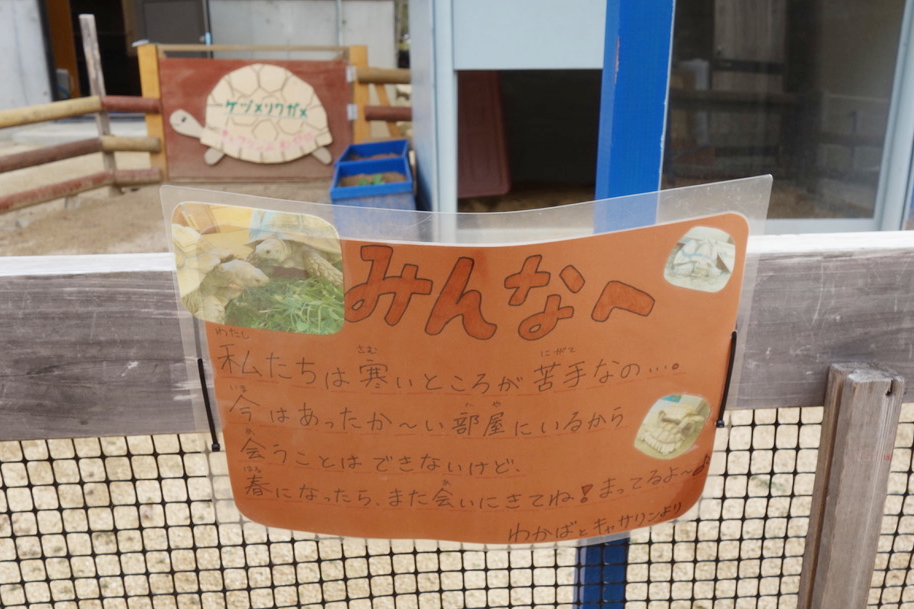 ケヅメリクガメ
みんなへ
わたし さむ にがて
私たちは寒いところが苦手なの…。
いま へや
今はあったか〜い部屋にいるから
あ
会うことはできないけど、
はる あ
春になったら、また会いにきてね!まってるよ〜♪
わかばとキャサリンより